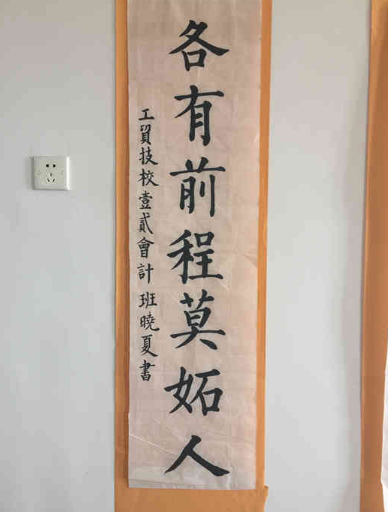 各有前程莫妬人
工貿技校壹貳會計班曉夏書